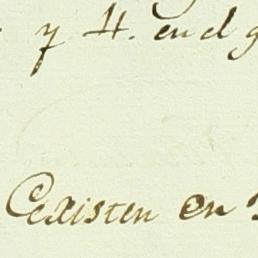 y H. en el
Existen en